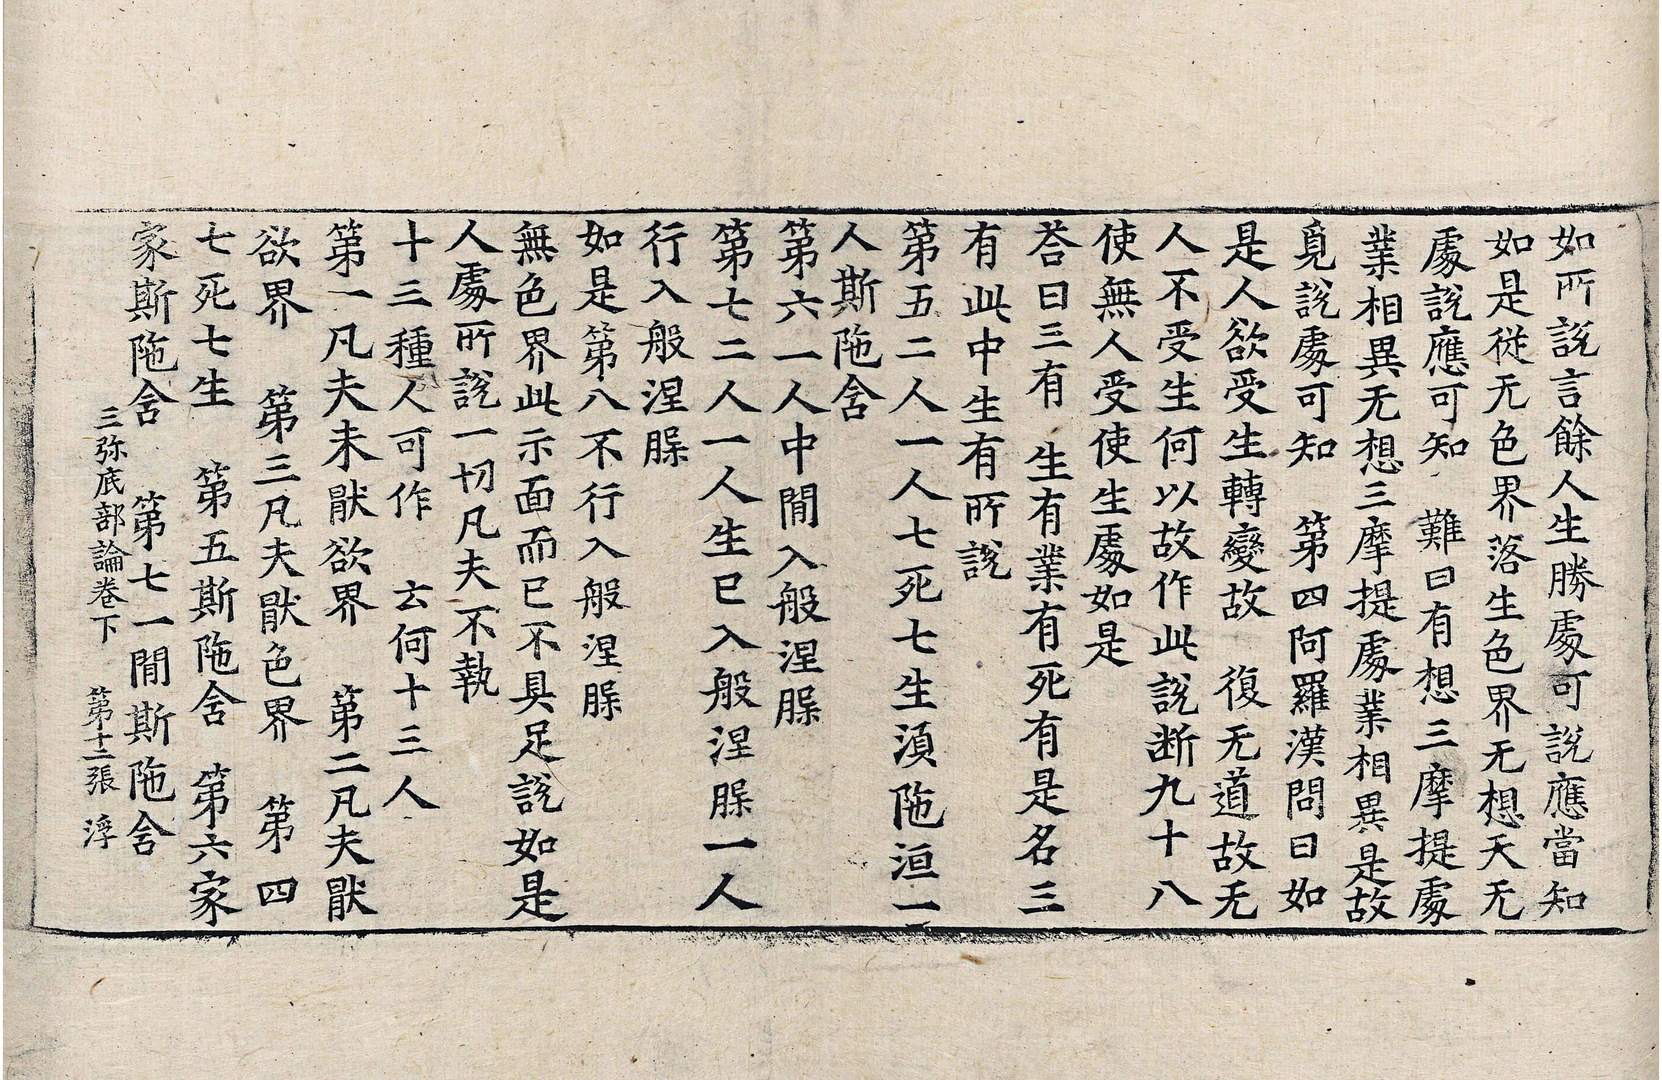 如所說言餘人生勝處可說應當知
如是從无色界落生色界无想天无
處說應可知 難曰有想三摩提處
業相異无想三摩提處業相異是故
覓說處可知 第四阿羅漢問曰如
是人欲受生轉變故 復无道故无
人不受生何以故作此說断九十八
使無人受使生處如是
荅曰三有 生有業有死有是名三
有此中生有所說
第五二人一人七死七生湏陁洹一
人斯陁含
第六一人中間入般涅腂
第七二人一人生已入般涅腂一人
行入般涅腂
如是第八不行入般涅腂
無色界此示面而已不具足說如是
人處所說一切凡夫不執
十三種人可作 云何十三人
第一凡夫未猒欲界 第二凡夫猒
欲界 第三凡夫猒色界 第四
七死七生 第五斯陁含 第六家
家斯陁含 第七一間斯陁含
三弥底部論卷下 第十二張 浮